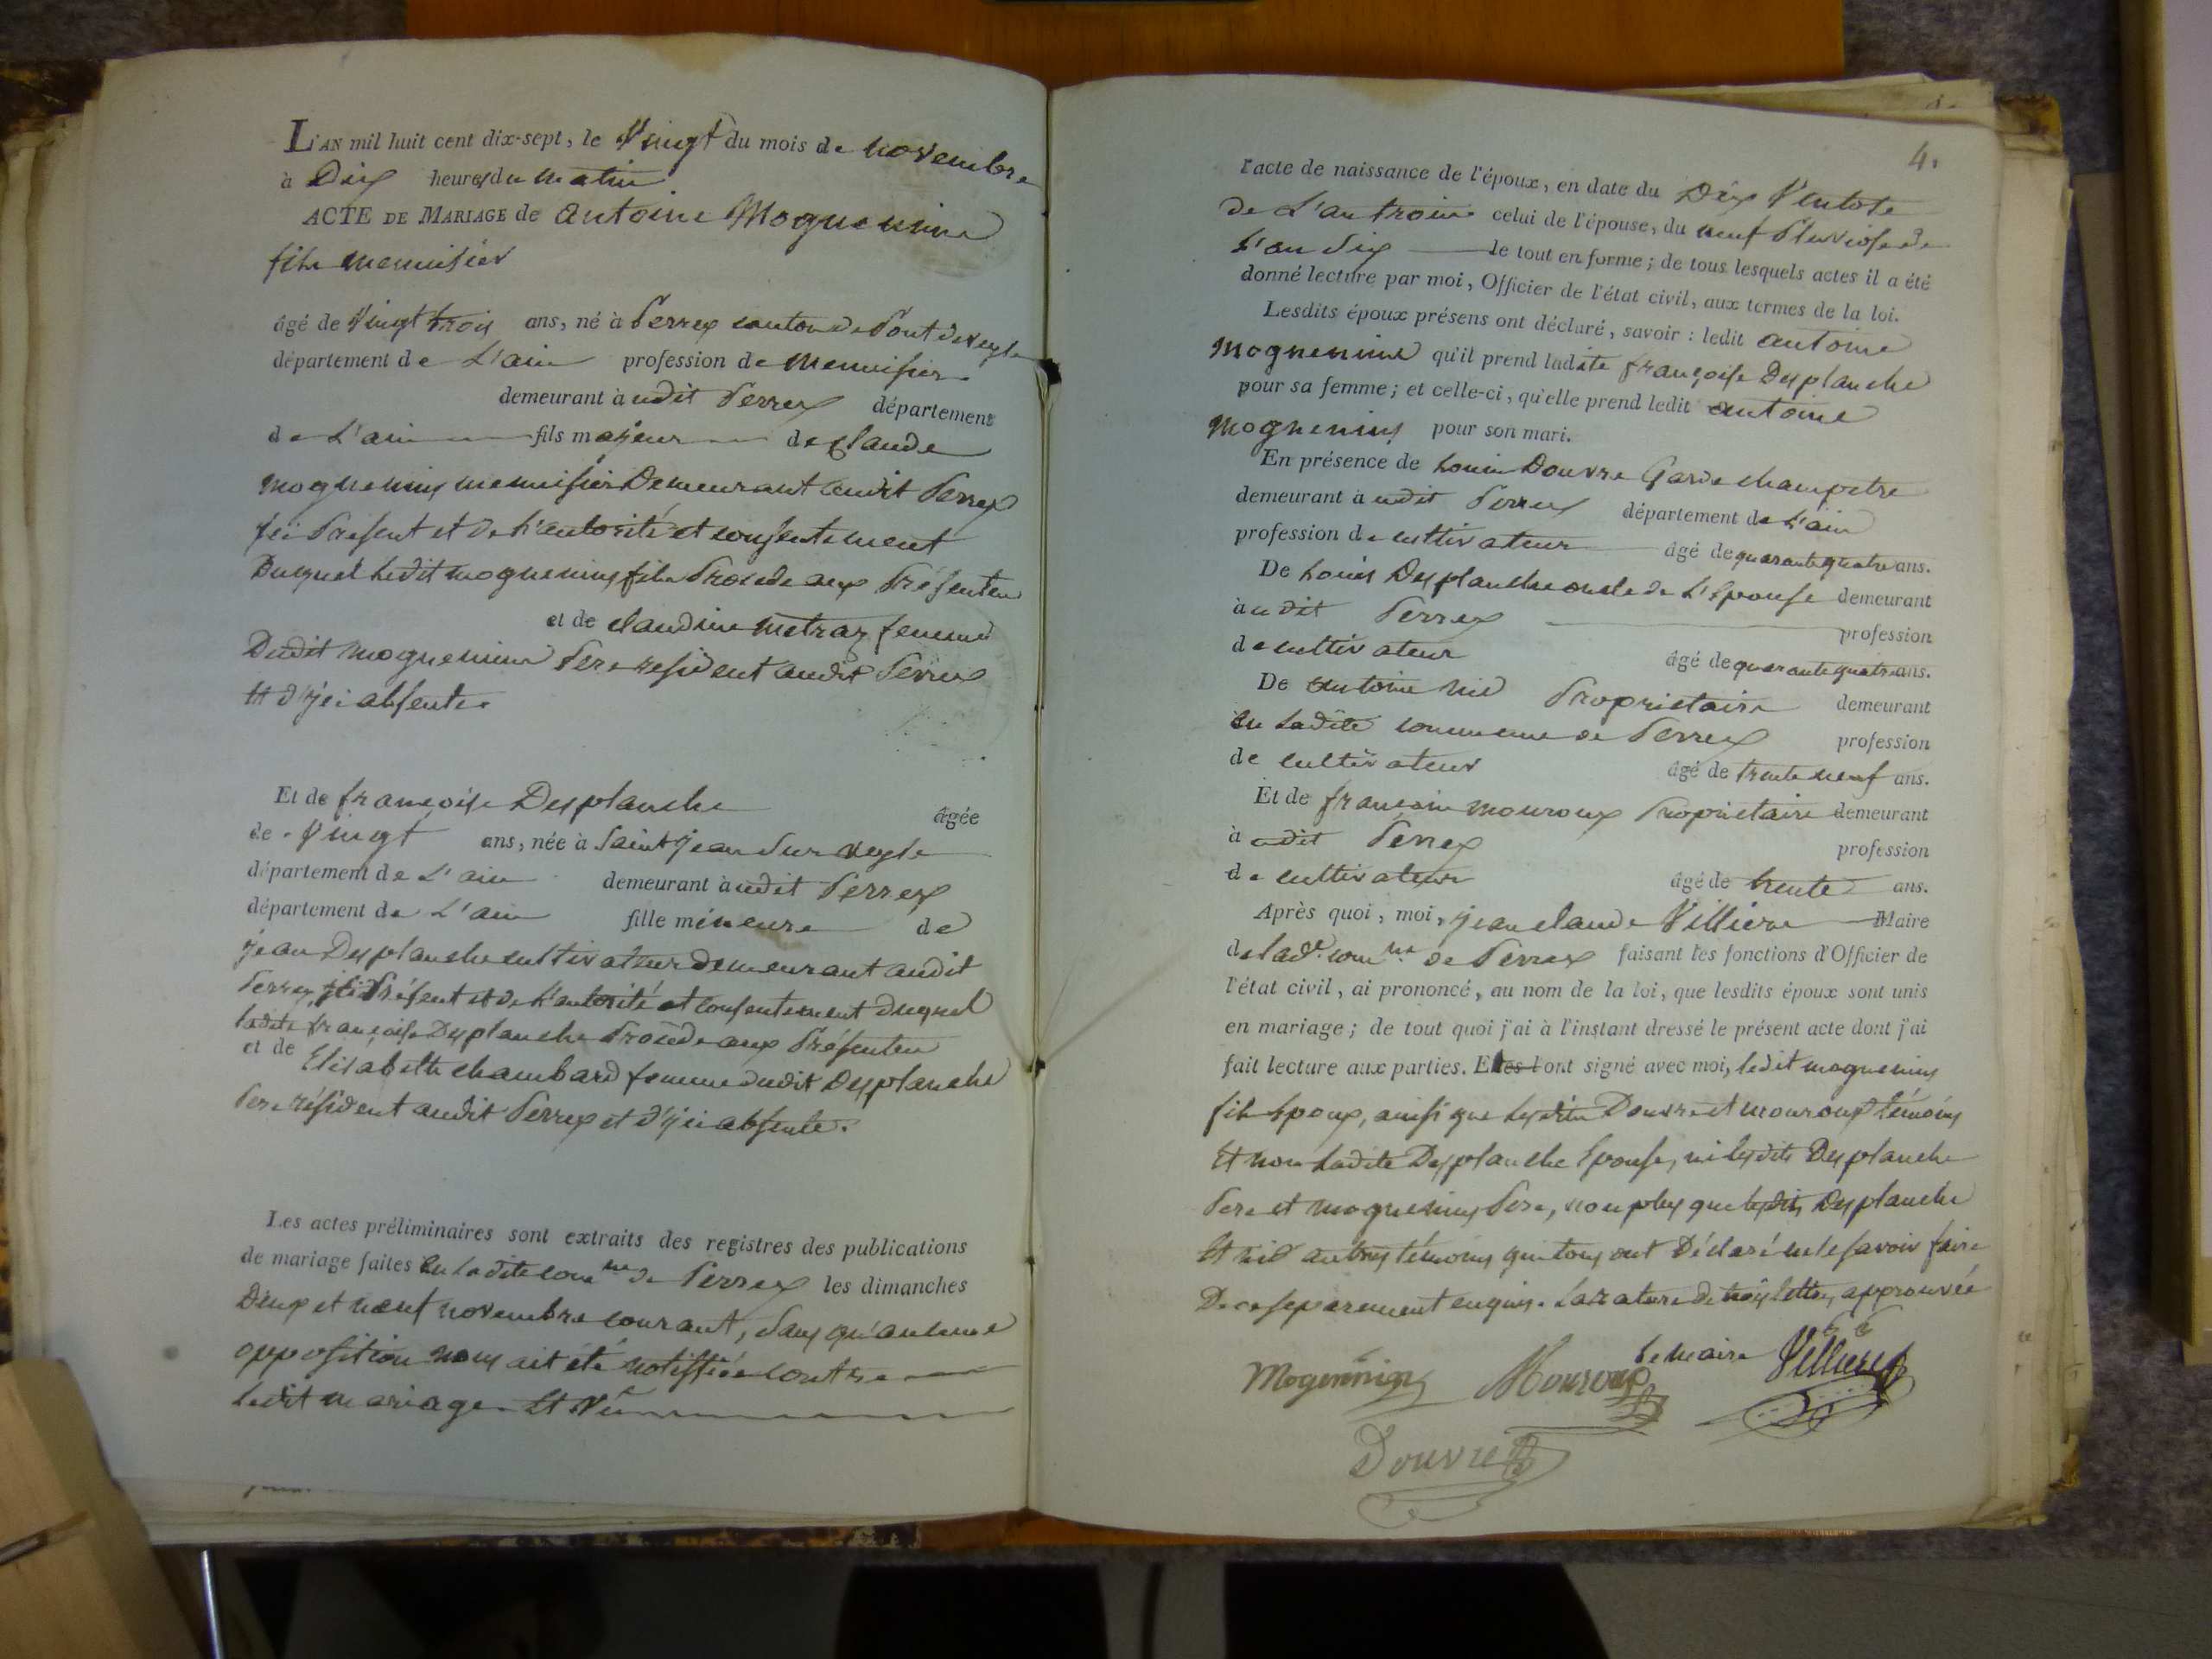 L'AN mil huit cent dix-sept, le Vingt du mois de novembre
à Dix heures du matin
ACTE DE MARIAGE de antoine Moguenin
fils menuisier
âgé de Vingt trois ans, né à Perrex canton de Pont deveyle
département de L'ain profession de menuisier
demeurant à udit Perrex département
de L'ain fils majeur de Claude
moguenins menuisier Demeurant audit Perrex
ici Present et de L'autorité et consentement
Duquel Ledit moguenins fils Procede aux Présentes
et de claudine metraz femme
Dudit moguenin Pere resident audit Perrex
Et d'ici absente.
Et de françoise Desplanche âgée
de Vingt ans, née à Saint jean Sur veyle
département de L'ain demeurant à udit Perrex
département de L'ain fille mineure de
jean Desplanche cultivateur demeurant audit
Perrex ici Présent et de L'autorité et consentement duquel
ladite françoise Desplanche Procède aux Présentes
et de Elisabeth chambard femme dudit Desplanche
Pere résident audit Perrex et d'ici absente.
Les actes préliminaires sont extraits des registres des publications
de mariage faites En la dite comne de Perrex les dimanches
Deux et neuf novembre courant, Sans qu'aucune
opposition nous ait été notiffiée contre
Ledit mariage Et Vû
4.
l'acte de naissance de l'époux, en date du Dix Ventose
de L'an trois celui de l'épouse, du neuf Pluviose de
L'an Six le tout en forme; de tous lesquels actes il a été
donné lecture par moi, Officier de l'état civil, aux termes de la loi.
Lesdits époux présens ont déclaré, savoir : ledit antoine
moguenin qu'il prend ladite françoise Desplanche
pour sa femme; et celle-ci, qu'elle prend ledit antoine
moguenins pour son mari.
En présence de Louis Douvre Garde champetre
demeurant à udit Perrex département de L'ain
profession de cultivateur âgé de quarante quatre ans.
De Louis Desplanche oncle de L'Epouse demeurant
à udit Perrex profession
de cultivateur âgé de quarante quatre ans.
De antoine nid Propriétaire demeurant
En Ladite commune de Perrex profession
de cultivateur âgé de trente neuf ans.
Et de françois mouroux Propriétaire demeurant
à udit Perrex profession
de cultivateur âgé de trente ans.
Après quoi, moi, jean claude Villiere Maire
de lade comne de Perrex faisant les fonctions d'Officier de
l'état civil, ai prononcé, au nom de la loi, que lesdits époux sont unis
en mariage; de tout quoi j'ai à l'instant dressé le présent acte dont j'ai
fait lecture aux parties. Elles l'ont signé avec moi, ledit moguenins
fils Epoux, ainsi que Lesdits Douvre et mouroux témoins
Et non Ladite Desplanche Epouse, ni lesdits Desplanche
Pere et moguenins Pere, non plus que lesdits Desplanche
Et nid autres témoins qui tous ont Déclaré ne le savoir faire
De ce separement enquis. La rature de trois lettres approuvée
Le maire Villiere
Mogennin Mouroux
Douvre